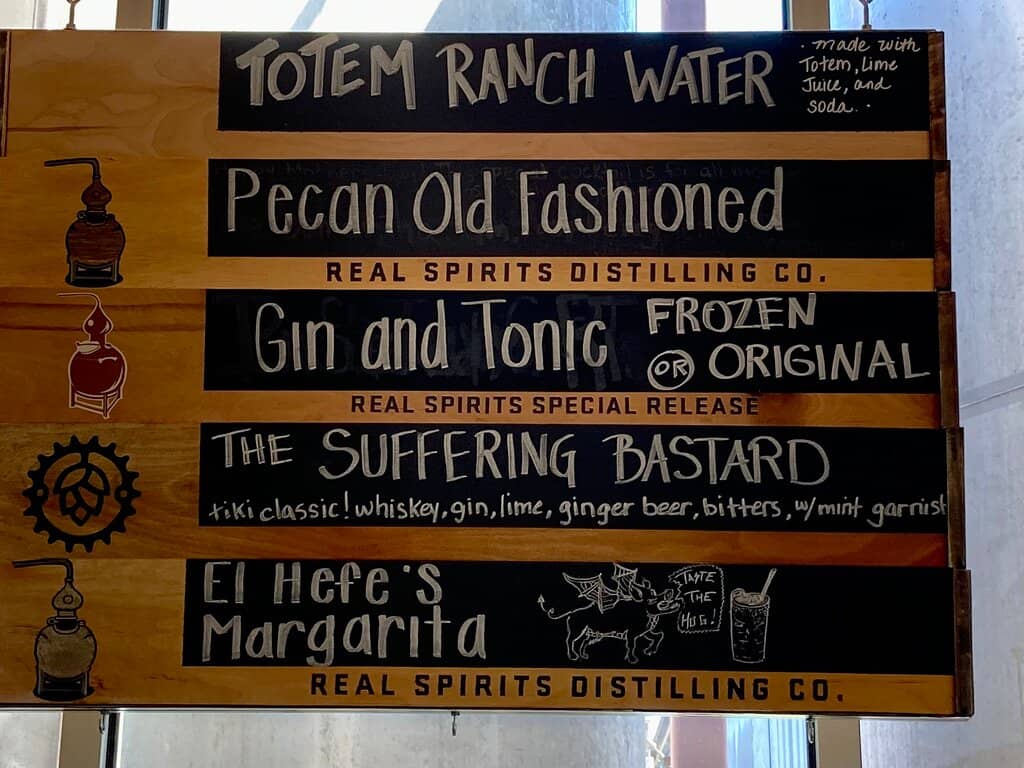 TOTEM RANCH WATER
· made with
Totem, Lime
Juice, and
soda. ·
Pecan Old Fashioned
REAL SPIRITS DISTILLING CO.
Gin and Tonic
FROZEN
OR ORIGINAL
REAL SPIRITS SPECIAL RELEASE
THE SUFFERING BASTARD
tiki classic! whiskey, gin, lime, ginger beer, bitters, w/ mint garnish
El Hefe's
Margarita
TASTE
THE
HUG!
REAL SPIRITS DISTILLING CO.